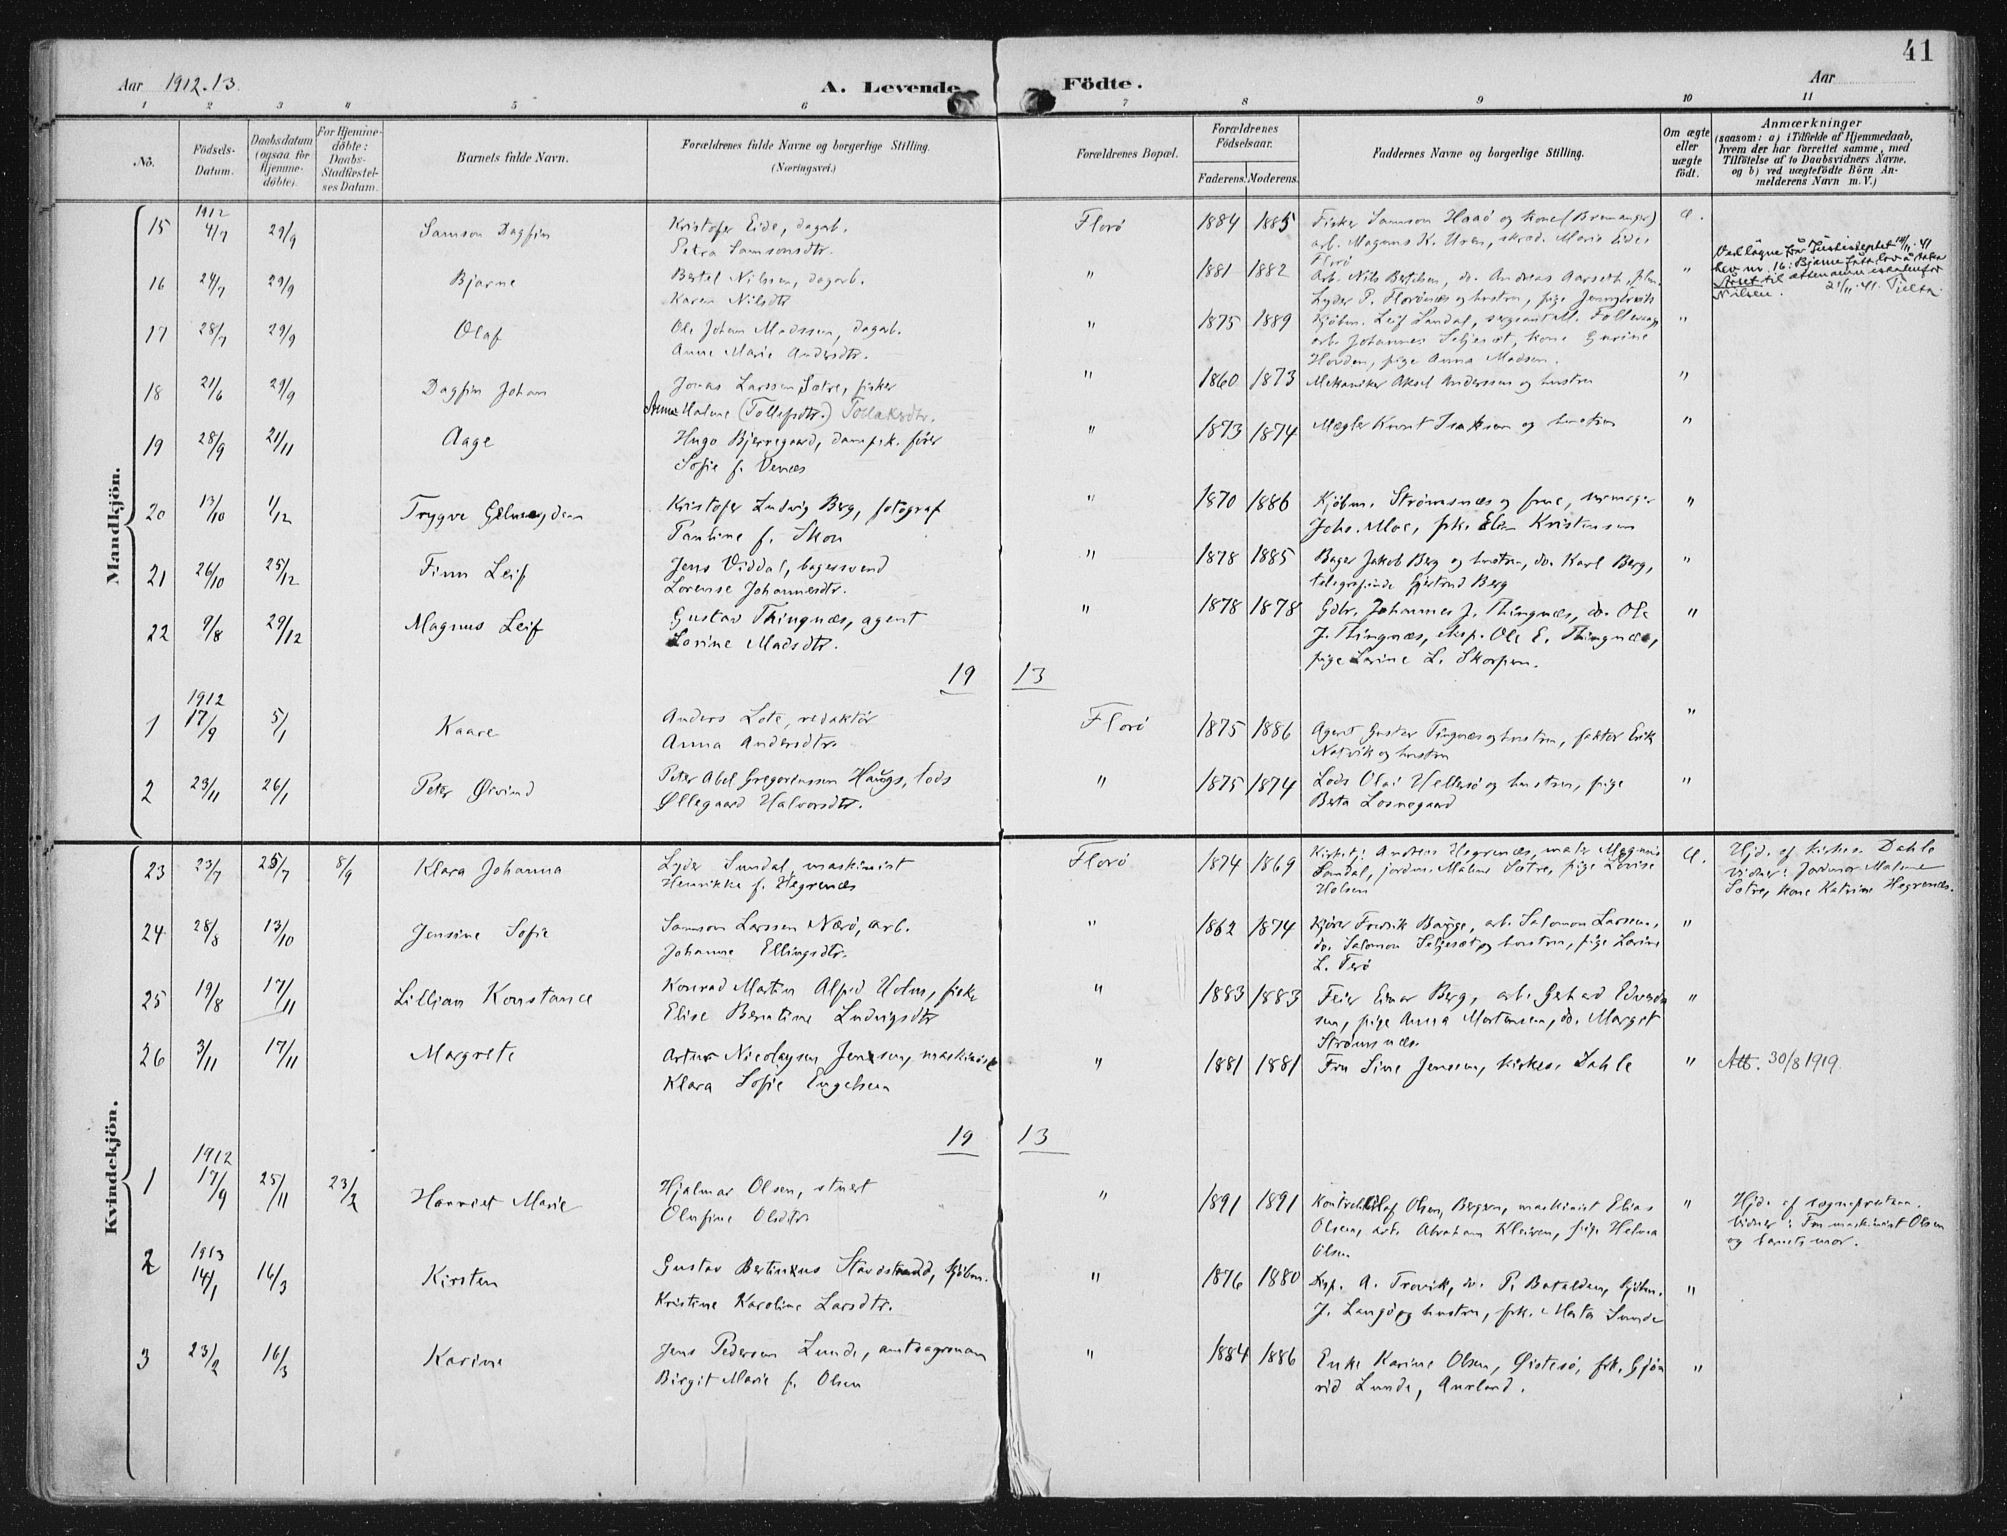 41
Aar 1912.13.
A. Levende Födte.
Aar
1 2 3 4 5 6 7 8 9 10 11
No.
Födsels-Datum.
Daabsdatum (ogsaa for Hjemme-döbte).
For Hjemme-döbte: Daabs-Stadfæstel-ses Datum.
Barnets fulde Navn.
Forældrenes fulde Navne og borgerlige Stilling.
(Næringsvei.)
Forældrenes Bopæl.
Forældrenes Födselsaar.
Faderens. Moderens.
Faddernes Navne og borgerlige Stilling.
Om ægte eller uægte födt.
Anmærkninger
(saasom: a) i Tilfælde af Hjemmedaab, hvem der har forrettet samme, med Tilföielse af to Daabsvidners Navne, og b) ved uægtefödte Börn An-melderens Navn m. V.)
Mandkjön.
15 1912 4/7 29/9 Samson Dagfin Kristofer Eide, dagarb. Florø 1884 1885 Fisker Samson Haaø og kone (Bremanger) æ.
Petra Samsonsdtr. arb. Magnus K. Uren, skræd. Marie Eide, Florø
16 24/7 29/9 Bjarne Bertel Nilsen, dagarb. " 1881 1882 Arb. Nils Bertelsen, do. Andreas Aarseth, "
Karen Nilsdtr. Lyder P. Florønes og hustru, pige
Nilsen. 21/11 41.
17 28/7 29/9 Olaf Ole Johan Madssen, dagarb. " 1875 1889 Kjøbm. Leif Sandal, sergeant M. "
Anne Marie Andersdtr. arb. Johannes Seljeset, kone Gurine
Hovden, pige Anna Madsen.
18 21/6 29/9 Dagfin Johan Jonas Larssen Sætre, fisker " 1860 1873 Mekaniker Aksel Anderssen og hustru "
Anne Malene (Tollefsdtr.) Tollaksdtr.
19 28/9 21/11 Aage Hugo Bjerregaard, dampsk. fører " 1873 1874 Mægler Knut Isaksen og hustru "
Sofie f. Venæs
20 13/10 1/12 Trygve Kristofer Ludvig Berg, fotograf " 1870 1886 Kjøbm. Strømsnæs og frue, urmager "
Pauline f. Skou Johs. Moe, frk. Kristensen
21 26/10 25/12 Finn Leif Jens Viddal, bagersvend " 1878 1885 Bager Jakob Berg og hustru, do. Karl Berg, "
Lorense Johannesdtr. telegrafinde Gjertrud Berg
22 9/8 29/12 Magnus Leif Gustav Thingnæs, agent " 1878 1878 Gdbr. Johannes J. Thingnæs, do. Ole "
Lovine Madsdtr. J. Thingnæs, eksp. Ole E. Thingnæs,
pige Lovine L. Skorpen.
19 13
1 1912 17/9 5/1 Kaare Anders Lote, redaktør Florø 1875 1886 Agent Gustav Tingnæs og hustru, faktor Erik "
Anna Andersdtr. Natvik og hustru
2 23/11 26/1 Peter Øivind Peter Abel Gregoriussen Haugs, lods " 1875 1874 Lods Olai Hellersø og hustru, pige "
Øllegaard Halvorsdtr. Berta Losnegaard
Kvindekjön.
23 23/7 25/7 8/9 Klara Johanna Lyder Sundal, maskinist Florø 1874 1869 Kirket. Andreas Hegrenæs, maler Magnus æ. Hjd. af kirkes. Dahle
Henrikke f. Hegrenæs Sandal, jordm. Malene Sætre, pige Lovise Vidner: Jordmor Malene
Holsen Sætre, kone Katrine Hegrenæs.
24 28/8 13/10 Jensine Sofie Samson Larssen Nærø, arb. " 1862 1874 Kjører Fredrik Bauge, arb. Salomon Larsen, "
Johanne Ellingsdtr. do. Salomon Seljeset og hustru, pige Lovine
L. Terø
25 19/8 17/11 Lillian Konstance Konrad Martin Alfred Holm, fisker " 1883 1883 Feier Einar Berg, arb. Gerhard Edvard- "
Elise Berntine Ludvigsdtr sen, pige Anna Mortensen, do. Margit
Strømsnæs
26 3/11 17/11 Margrete Artur Nicolaysen Jensen, maskinist " 1881 1881 Fru Sine Jenssen, kirkes. Dahle " Att. 30/8 1919.
Klara Sofie Engelsen
19 13
1 1912 17/9 25/11 23/2 Harriet Marie Hjalmar Olsen, stuert " 1891 1891 Olaf Olsen, Bergen, maskinist Elias " Hjd. af sognepresten.
Olufine Olsdtr. Olsen, Abraham Kleiven, pige Helma Vidner: Fru maskinist Olsen
Olsen og barnets mor.
2 1913 14/1 16/3 Kirsten Gustav Bertinius Stavestrand, kjøbm. " 1876 1880 Dsp. A. Trovik, do. P. Batalden, kjøbm. "
Kristine Karoline Larsdtr. J. Langø og hustru, frk. Marta Sunde
3 23/2 16/3 Karine Jens Pedersen Lunde, amtsagronom " 1884 1886 Enke Karine Olsen, Øistesø, frk. Gjøn- "
Birgit Marie f. Olsen rid Lunde, Aurland.